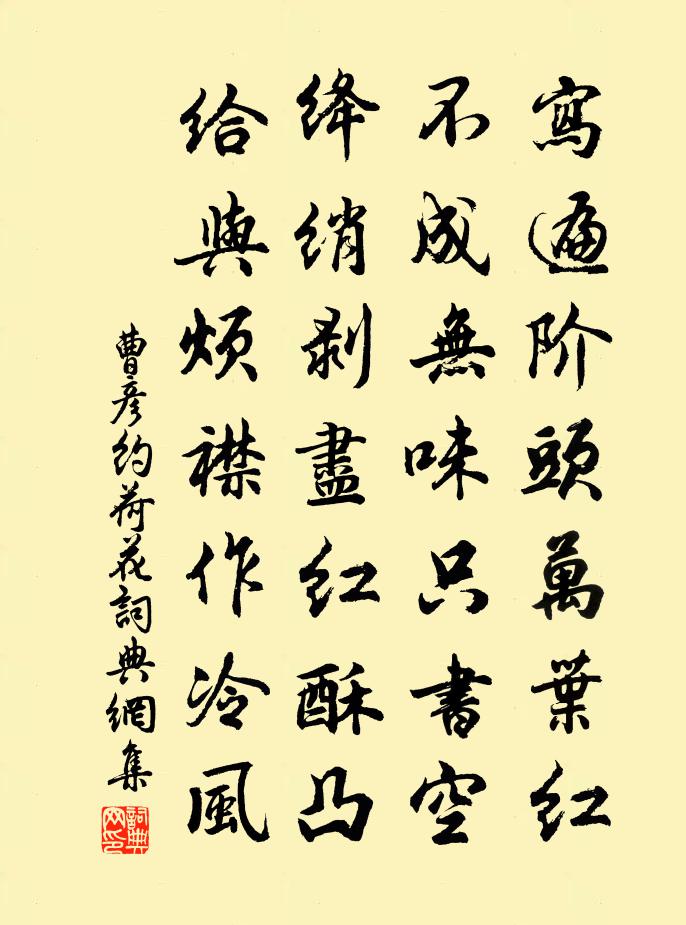 寫遍阶頭萬葉紅
不成無味只書空
绛绡剥盡红酥凸
给與烦襟作冷風
曹彦约荷花詞典網集
詞典网印